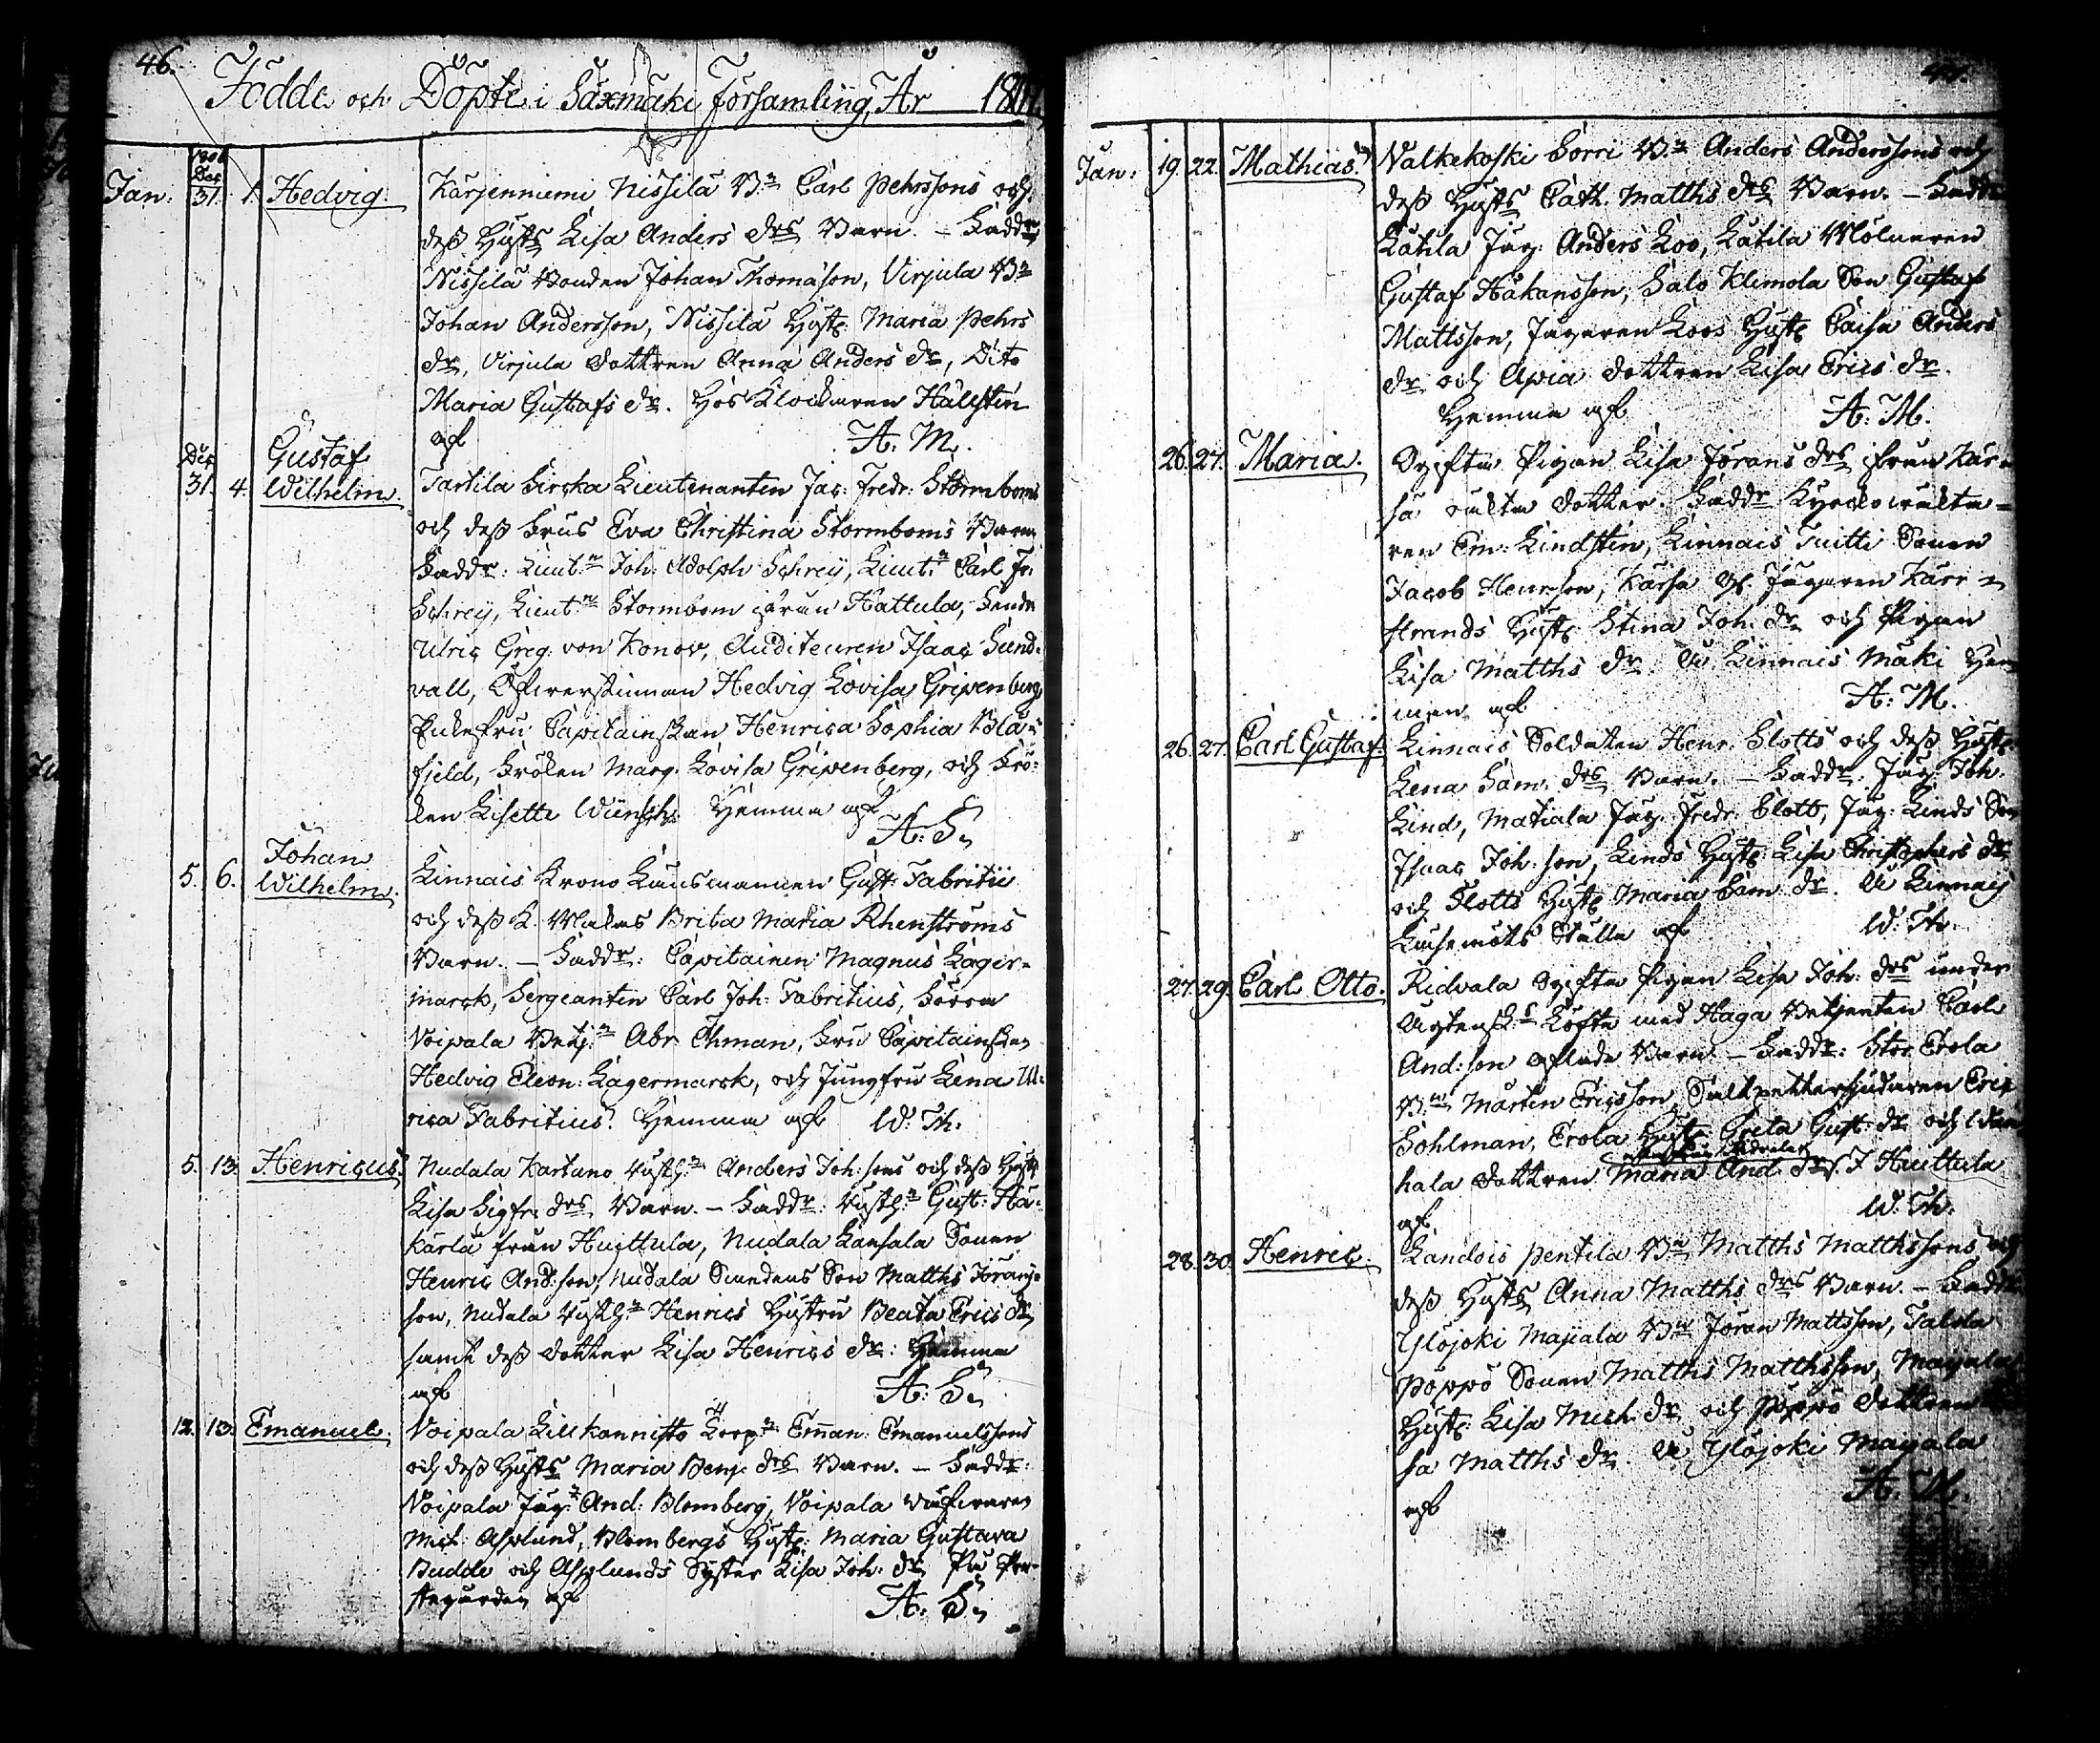 46.
Födde och Döpte i Säxmäki Församling, År 1807.
1806
Dec
Jan: 31. 1. Hedvig. Karjenniemi Nissilä B:n Carl Pehrssons och
dess Hust: Lisa Anders drs Barn. – Faddr:
Nissilä Bonden Johan Thomasson, Virjula B:n
Johan Andersson, Nissilä Hust: Maria Pehrs
dr, Virjula dottren Anna Anders dr, Dito
Maria Gustafs dr. Hos Klockaren Hällsten
af A. M.
Dec
31. 4. Gustaf Wilhelm. Tarttila Sircka Lieutenanten Jac: Fredr: Stormboms
och dess Frus Eva Christina Stormboms Barn
Faddr: Lieut:n Joh: Adolph Schrey, Lieut:n Carl Fr:
Schrey, Lieut:n Stormbom från Hattula, Fendr:
Ulric Greg: von Konow, Auditeuren Isaac Sund-
vall, Hedvig Lovisa Gripenberg
Capitainskan Henrica Sophia Blå-
fjeld, Fröken Marg. Lovisa Gripenberg, och Frö-
ken Lisette Wünsch. Hemma af
A: S.
5. 6. Johan Wilhelm. Linnais Krono Länsmannen Gust: Fabritii
och dess K. Makas Brita Maria Rhenströms
Barn. – Faddr: Capitainen Magnus Lager-
marck, Sergeanten Carl Joh: Fabritius, Herrn
Voipala Betj:n Abr. Öhman, Fru Capitainskan
Hedvig Eleon: Lagermarck, och Jungfru Lena Ul-
rica Fabritius. Hemma af W. Th.
5. 13. Henricus. Nudala Kartano Rusth:n Anders Joh:sons och dess Hust:
Lisa Sigfr: drs Barn. – Faddr: Rusth:n Gust: Ha-
karla från Huittula, Nudala Lansala Sonen
Henric And:son, Nudala Smedens Son Matths Jörans-
son, Nudala Rusth:n Henrics Hustru Beata Erics dr,
samt dess dotter Lisa Henrics dr: Hemma
af A: S.
12. 13. Emanuel. Voipala Lill kannisto Corp:n Eman: Emanuelssons
och dess Hust: Maria Benj: drs Barn. – Faddr:
Voipala Jäg:n And: Blomberg, Voipala
Mich: Asplund, Blombergs Hust: Maria Gustava
Budde och Asplunds Syster Lisa Joh: dr, På Pre-
stegården af A: S.
47.
Jan: 19. 22. Mathias. Valkekoski Sorri B:n Anders Anderssons och
dess Hust: Cath. Matths drs Barn. – Faddr:
Kätilä Jäg: Anders Loo, Kätilä Mölnaren
Gustaf Håkansson, Salo Klemola Son Gustaf
Mattsson, Jägaren Loos Hust: Caisa Anders
dr och Apia dottren Lisa Erics dr.
Hemma af A: M.
26. 27. Maria. Ogifta Pigan Lisa Jörans drs från Kär-
sä oäkta dotter. Faddr:
ren Em: Lindsten, Linnais Tuitti Sonen
Jacob Henr:son, Kärsä Jägaren Kär-
strands Hust: Stina Joh. dr och Pigan
Lisa Matths dr. På Linnais Mäki Hem-
man af A: M.
26. 27. Carl Gustaf. Linnais Soldaten Henr. Slotts och dess Hust:
Lena Sam. drs Barn. – Faddr: Jäg: Joh.
Lind, Matiala Jäg: Fredr. Slott, Jäg: Linds Son
Isaac Joh:son, Linds Hust: Lisa Christophers dr
och Slotts Hust: Maria Sam dr. På Linnais
ställe af W. Th.
27. 29. Carl Otto. Ridvala Ogifta Pigan Lisa Joh: drs under
Löfte med Haga Betjenten Carl
And:son aflade Barn – Faddr: Stor Erola
B:n Mårten Ericsson, Saltpettersjudaren Eric
Sohlman, Erola Hust: Greta Gust: dr och Vän
hala dottren Maria And. drs. I Huittula
af W. Th.
28. 30. Henric. Landois Pentila B:n Matths Matthssons och
dess Hust: Anna Matths drs Barn. – Faddr:
Ylöjoki Mayala B:n Jöran Mattsson, Talola
Pöppö Sonen Matths Matthsson, Mayala
Hust: Lisa Mich: dr och Pöppö dottren
sa Matths dr. På Ylöjoki Mayala
af A: M.